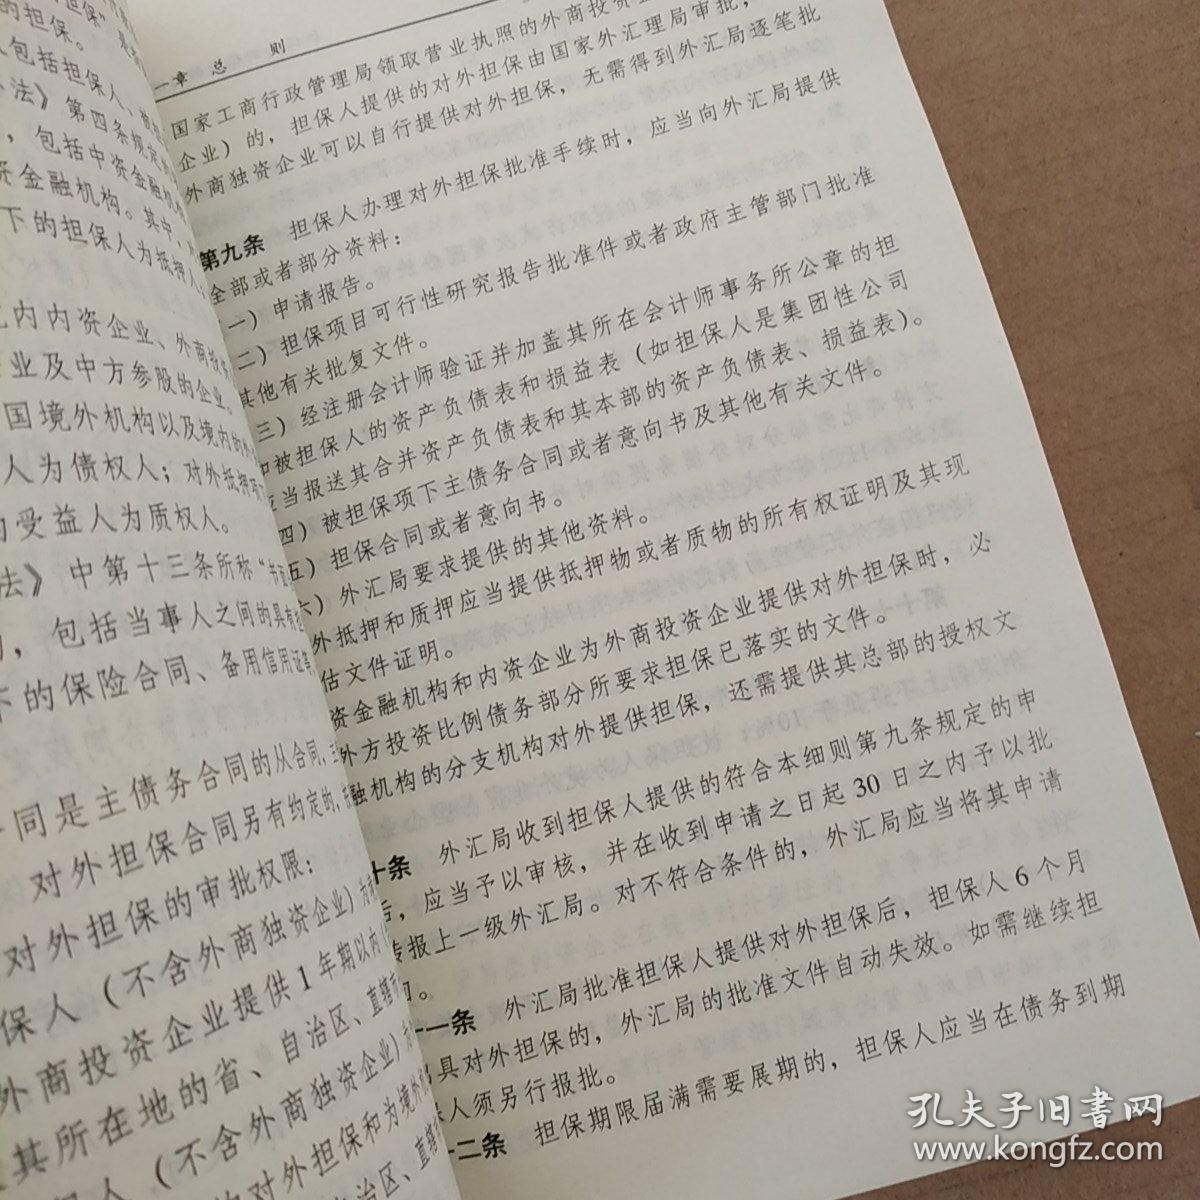 的担保。
人包括担保人、被担
办法》第四条规定的
，包括中资金融机构
资金融机构。其中，
下的担保人为抵押人；
内内资企业、外商投资
业及中方参股的企业。
国境外机构以及境内的外
人为债权人；对外抵押项下
的受益人为质权人。
法》中第十三条所称“书面
，包括当事人之间的具有担
下的保险合同、备用信用证等
合同是主债务合同的从合同，主
对外担保合同另有约定的，
对外担保的审批权限：
保人（不含外商独资企业）为
外商投资企业提供1年期以内
其所在地的省、自治区、直辖市
（不含外商独资企业）为
的对外担保和为境外
一章 总 则
国家工商行政管理局领取营业执照的外商投资企业
企业）的，担保人提供的对外担保由国家外汇理局审批，
外商独资企业可以自行提供对外担保，无需得到外汇局逐笔批
第九条 担保人办理对外担保批准手续时，应当向外汇局提供
全部或者部分资料：
一）申请报告。
二）担保项目可行性研究报告批准件或者政府主管部门批准
其他有关批复文件。
三）经注册会计师验证并加盖其所在会计师事务所公章的担
和被担保人的资产负债表和损益表（如担保人是集团性公司
应当报送其合并资产负债表和其本部的资产负债表、损益表）。
四）被担保项下主债务合同或者意向书及其他有关文件。
五）担保合同或者意向书。
六）外汇局要求提供的其他资料。
外抵押和质押应当提供抵押物或者质物的所有权证明及其现
估文件证明。
资金融机构和内资企业为外商投资企业提供对外担保时，必
外方投资比例债务部分所要求担保已落实的文件。
融机构的分支机构对外提供担保，还需提供其总部的授权文
十条 外汇局收到担保人提供的符合本细则第九条规定的申
后，应当予以审核，并在收到申请之日起30日之内予以批
转报上一级外汇局。对不符合条件的，外汇局应当将其申请
十一条 外汇局批准担保人提供对外担保后，担保人6个月
出具对外担保的，外汇局的批准文件自动失效。如需继续担
保人须另行报批。
十二条 担保期限届满需要展期的，担保人应当在债务到期
孔夫子旧书网
www.kongfz.com